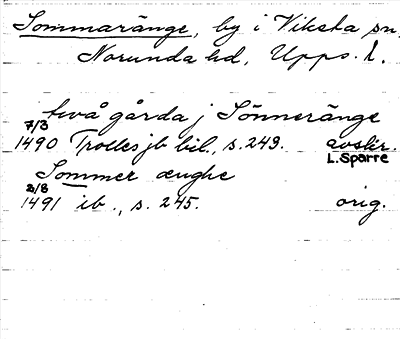 Sommaränge, by i Viksta sn,
Norunda hd, Upps. l.
två gårda j Sönneränge
7/3
1490 Trolles jb bil., s. 249. avskr.
L. Sparre
Sommer ænghe
2/8
1491 ib., s. 245. orig.